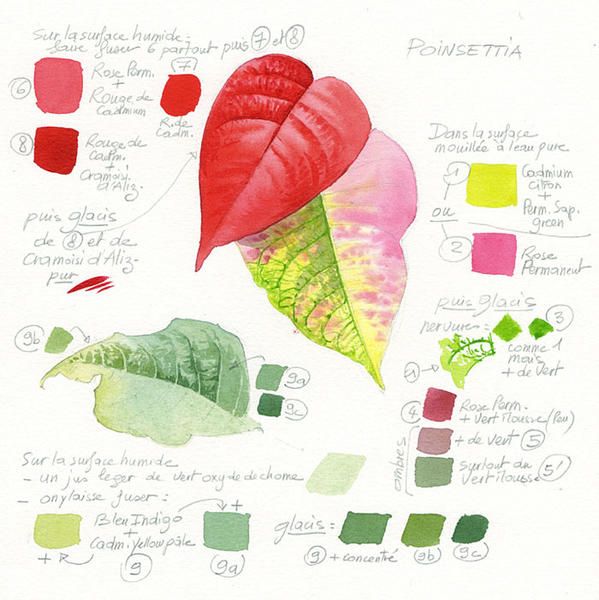 Sur la surface humide :
faire fuser 6 partout puis 7 et 8
6
Rose Perm.
+
Rouge de
Cadmium
7
R. de
Cadm.
8
Rouge de
Cadm.
+
Cramoisi
d'Aliz.
puis glacis
de 8 et de
Cramoisi d'Aliz-
pur
POINSETTIA
Dans la surface
mouillée à l'eau pure
1
Cadmium
citron
+
Perm. Sap.
green
ou
2
Rose
Permanent
puis glacis
nervures :
3
comme 1
mais
+ de vert
4
Rose Perm.
+ Vert Mousse (peu)
+ de vert 5
surtout du
Vert Mousse 5'
ombres
9b
9a
9c
Sur la surface humide
- un jus léger de vert oxyde de chome
- on y laisse fuser :
Bleu Indigo
+
Cadm. Yellow pâle
9
+
9a
glacis :
9 + concentré
9b
9c